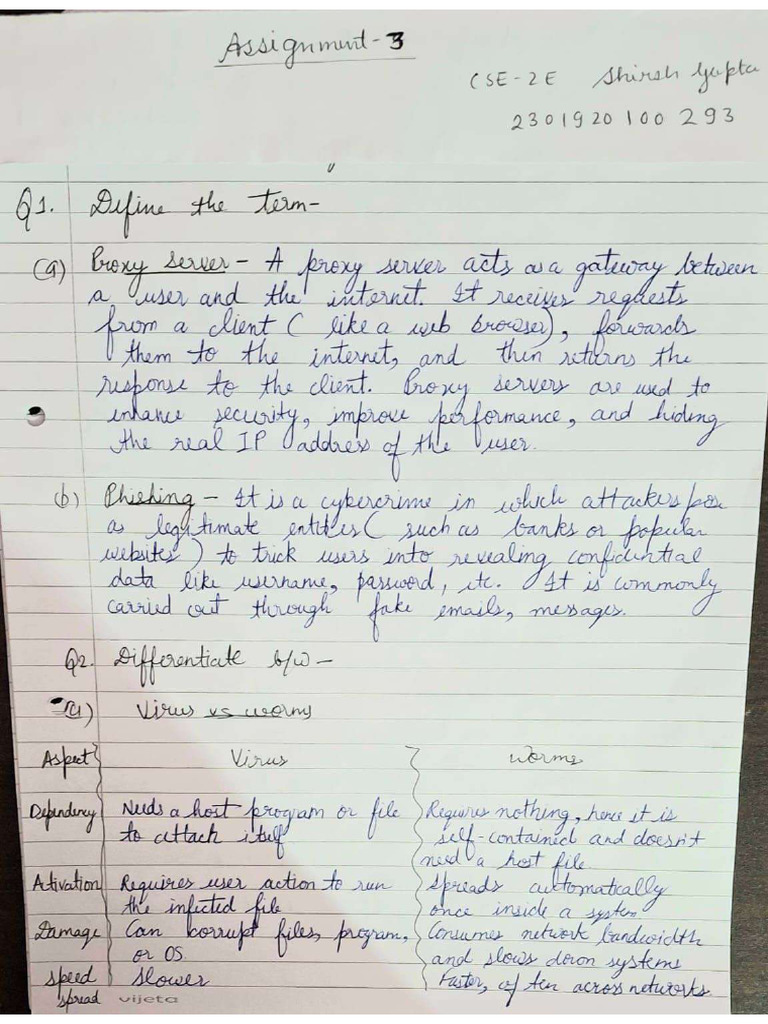 Assignment-3
CSE-2E Shirsh Gupta
2301920100293
Q1. Define the term-
(a) Proxy server - A proxy server acts as a gateway between
a user and the internet. It receives requests
from a client ( like a web browser), forwards
them to the internet, and then returns the
response to the client. Proxy servers are used to
enhance security, improve performance, and hiding
the real IP address of the user.
(b) Phishing - It is a cybercrime in which attackers pose
as legitimate entities ( such as banks or popular
websites ) to trick users into revealing confidential
data like username, password, etc. It is commonly
carried out through fake emails, messages.
Q2. Differentiate b/w -
(a) Virus vs worms
Aspect Virus Worms
Dependency Needs a host program or file Requires nothing, hence it is
to attach itself self-contained and doesn't
need a host file
Activation Requires user action to run Spreads automatically
the infected file once inside a system
Damage Can corrupt files, program, Consumes network bandwidth
or OS and slows down systems
Speed Slower Faster, often across networks
spread vijeta